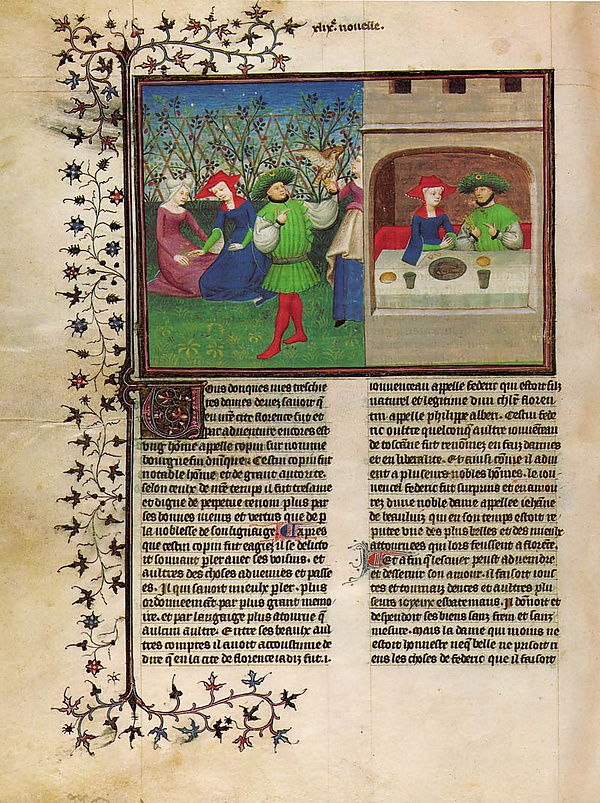 xlixe. nouelle.
Vous donques mes treschie
res dames deuez sauoir q̄
en nr̄e cite florence fut et
par aduenture encores est
vng hōme appelle copin surnomme
bourgne fin dnīque. Cestui copin fut
notable hōme et de grant autorite
selon ceulx de nr̄e temps il fut tressaige
et digne de perpetue renom plus par
ses bonnes meurs et vertus que de p̄
la noblesse de son lignage. Capres
que cestui copin fut eagiez il se delicto
it souuant pler auec ses voisins. et
aultres des choses aduenues et passe
es. Il qui sauoit mieulx pler. plus
ordonneement. par plus grant memo
ire. et par langaige plus atourne q̄
aulcun aultre. Entre ses beaulx aul
tres comptes il auoit accoustume de
dire q̄ en la cite de florence iadiz fut. i.
iouuenceau appelle federic qui estoit filz
naturel et legitime dun chlr̄ floren
tin appelle philippe alberi. Cestui fede
ric oultre quelconq̄ aultre iouuēceau
de toscāne fut renōmez en faiz darmes
et en liberalite. Et ainsi cōme il adui
ent a pluseurs nobles hōmes. le iou
uencel federic fut surprins et enamou
rez dune noble dame appellee iehāne
de beauluiz qui en son temps estoit re
putee vne des plus belles et des mieulx
attournees qui lors feussent a florēce.
Et a fin q̄ lesauer peust aduendre
et desseruir son amour. il faisoit ious
tes et tournaiz dances et aultres plu
seurs ioyeux esbatemans. Il dōnoit et
despendoit ses biens sanz frein et sanz
mesure. Mais la dame qui moins ne
estoit honneste neq̄ belle ne prisoit ri
ens les choses de federic que il faisoit